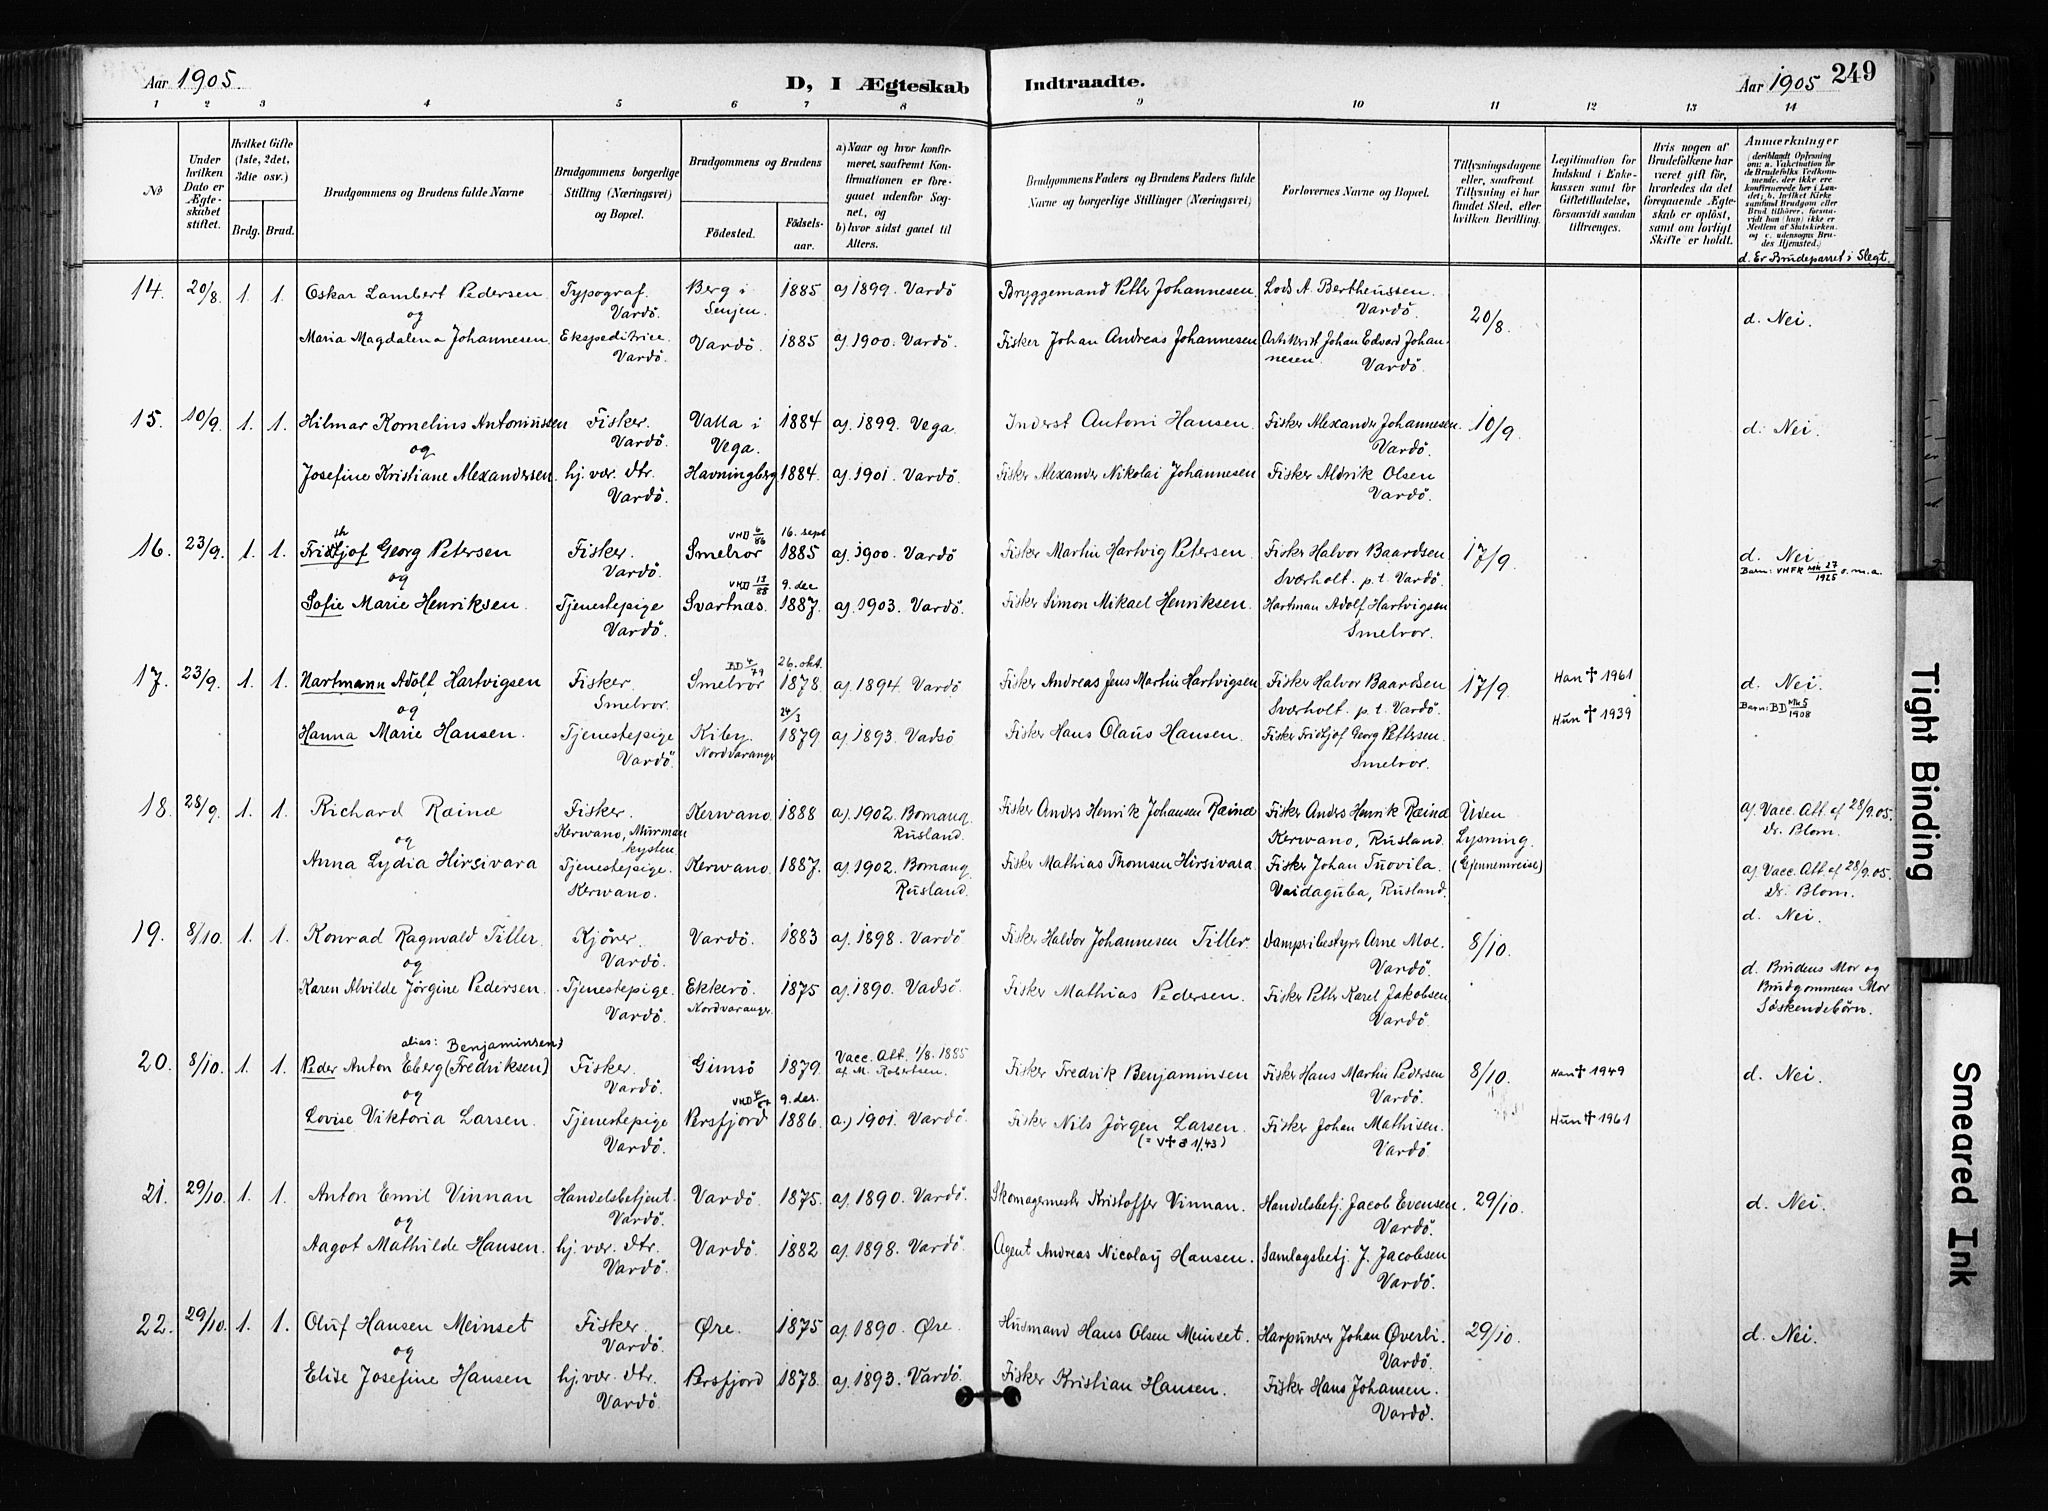 Aar 1905.
D, I Ægteskab Indtraadte.
Aar 1905
249
1 2 3 4 5 6 7 8 9 10 11 12 13 14
No
Under hvilken Dato er Ægteskabet stiftet.
Hvilket Gifte (1ste, 2det, 3die osv.)
Brdg. Brud.
Brudgommens og Brudens fulde Navne
Brudgommens borgerlige Stilling (Næringsvei) og Bopæl.
Brudgommens og Brudens
Fødested.
Fødselsaar.
a) Naar og hvor konfirmeret, saafremt Konfirmationen er foregaaet udenfor Sognet, og
b) hvor sidst gaaet til Alters.
Brudgommens Faders og Brudens Faders fulde Navne og borgerlige Stillinger (Næringsvei)
Forlovernes Navne og Bopæl.
Tillysningsdagene eller, saafremt Tillysning ei har fundet Sted, efter hvilken Bevilling.
Legitimation for Indskud i Enkekassen samt for Giftetilladelse, forsaavidt saadan tiltrænges.
Hvis nogen af Brudefolkene har været gift før, hvorledes da det foregaaende Ægteskab er opløst, samt om lovligt Skifte er holdt.
Anmærkninger (deriblandt Oplysning om: a. Vakcination for de Brudefolks Vedkommende, der ikke ere konfirmerede her i Landet; b. hvilket Kirkesamfund Brudgom eller Brud tilhører, forsaavidt han (hun) ikke er Medlem af Statskirken, og c. udensogns Brudes Hjemsted.)
d. Er Brudeparret i Slegt.
14. 20/8. 1. 1. Oskar Lambert Pedersen Typograf. Vardö. Berg i Senjen. 1885 a) 1899. Vardö Bryggemand Petter Johannesen Lods A. Bertheussen. Vardö. 20/8. d. Nei.
og
Maria Magdalena Johannesen Ekspeditrice Vardö. Vardö. 1885 a) 1900. Vardö. Fisker Johan Andreas Johannesen Johan Edvard Johannesen. Vardö.
15. 10/9. 1. 1. Hilmar Kornelius Antoniussen Fisker. Vardö. Valla i Vega. 1884 a) 1899. Vega. Inderst Antoni Hansen. Fisker Alexander Johannesen Vardö. 10/9. d. Nei.
og
Josefine Kristiane Alexandersen. hj. vær. dtr. Vardö. Havningberg 1884. a) 1901. Vardö. Fisker Alexander Nikolai Johannesen Fisker Aldrik Olsen Vardö.
16. 23/9. 1. 1. Fridtjof Georg Petersen Fisker. Vardö. VHD 6/86 Smelror 16. sept 1885 a) 1900. Vardö Fisker Martin Hartvig Petersen Fisker Halvor Baardsen Sværholt. p. t. Vardö. 17/9. d. Nei
Barn: VHFR Mk 27/1925 o. m. a.
og
Sofie Marie Henriksen. Tjenestepige Vardö. VHD 13/88 Svartnæs. 9. des 1887. a) 1903. Vardö. Fisker Simon Mikael Henriksen. Hartman Adolf Hartvigsen Smelror.
17. 23/9. 1. 1. Hartmann Adolf Hartvigsen Fisker. Smelror. BD 4/79 Smelror 26. okt. 1878. a) 1894. Vardö Fisker Andreas Jens Martin Hartvigsen Fisker Halvor Baardsen Sværholt. p. t. Vardö. 17/9. Han † 1961 d. Nei.
Barn: BD Mk 5/1908
og
Hanna Marie Hansen. Tjenestepige Vardö. Kiby. Nordvaranger 24/3 1879 a) 1893. Vadsö Fisker Hans Olaus Hansen. Fisker Fridtjof Georg Pettersen. Smelror. Hun † 1939
18. 28/9. 1. 1. Richard Rœinœ Fisker. Kerwano, Murmankysten Kerwano. 1888 a) 1902. Bomanq Rusland. Fisker Anders Henrik Johansen Rœinœ Fisker Anders Henrik Rœinœ Kerwano, Rusland. Uden Lysning. (Gjennemreise) a) Vacc. Att. af 28/9.05. Dr. Blom.
og
Anna Lydia Hirsivara Tjenestepige. Kerwano. Kerwano. 1887. a) 1902. Bomanq Rusland. Fisker Mathias Thomsen Hirsivara Fisker Johan Tuovila. Vaidaguba, Rusland. a) Vacc. Att. af 28/9.05. Dr. Blom. d. Nei.
19. 8/10. 1. 1. Konrad Ragnvald Tiller. Kjörer. Vardö. Vardö. 1883 a) 1898. Vardö Fisker Haldor Johannesen Tiller. Dampribestyrer Arne Moe. Vardö. 8/10.
og
Karen Alvilde Jörgine Pedersen. Tjenestepige. Vardö. Ekkerö. Nordvaranger. 1875 a) 1890. Vadsö. Fisker Mathias Pedersen. Fisker Petter Karel Jakobsen Vardö. d. Brudens Mor og Brudgommens Mor Söskendebörn.
alias: Benjaminsen
20. 8/10. 1. 1. Peder Anton Eberg (Fredriksen) Fisker. Vardö. Gimsö 1879. Vacc. Att. 1/8. 1885 af M. Robertsen. Fisker Fredrik Benjaminsen Fisker Hans Martin Pedersen Vardö. 8/10. Han † 1949 d. Nei.
og
Lovise Viktoria Larsen. Tjenestepige Vardö. Persfjord 9. des. 1886. a) 1901. Vardö. Fisker Nils Jörgen Larsen. (= V† 8 1/43) Fisker Johan Mathisen. Vardö. Hun † 1961
21. 29/10. 1. 1. Anton Emil Vinnan Handelsbetjent. Vardö. Vardö. 1875. a) 1890. Vardö. Skomagermester Kristoffer Vinnan. Handelsbetj. Jacob Evensen Vardö. 29/10. d. Nei.
og
Aagot Mathilde Hansen. hj. vær. dtr. Vardö. Vardö. 1882 a) 1898. Vardö. Agent Andreas Nicolay Hansen. Samlagsbetj. J. Jacobsen Vardö.
22. 29/10. 1. 1. Oluf Hansen Meinset Fisker. Vardö. Øre. 1875 a) 1890. Øre. Husmand Hans Olsen Meinset. Harpunerer Johan Øverli. Vardö. 29/10. d. Nei.
og
Elise Josefine Hansen hj. vær. dtr. Vardö. Persfjord 1878. a) 1893. Vardö. Fisker Kristian Hansen. Fisker Hans Johansen. Vardö.
Tight Binding
Smeared Ink